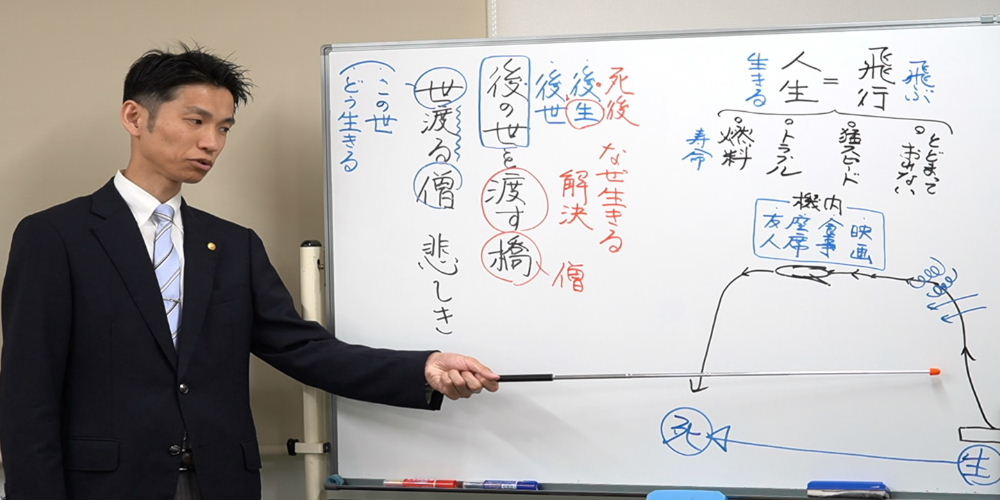 飛行 = 人生
飛ぶ
生きる
とどまっておれない
猛スピード
トラブル
燃料
寿命
機内
映画
食事
座席
友人
生
死
死後
後生
後世
なぜ生きる
解決
僧
後の世を渡す橋
世渡る僧 悲しき
この世
どう生きる